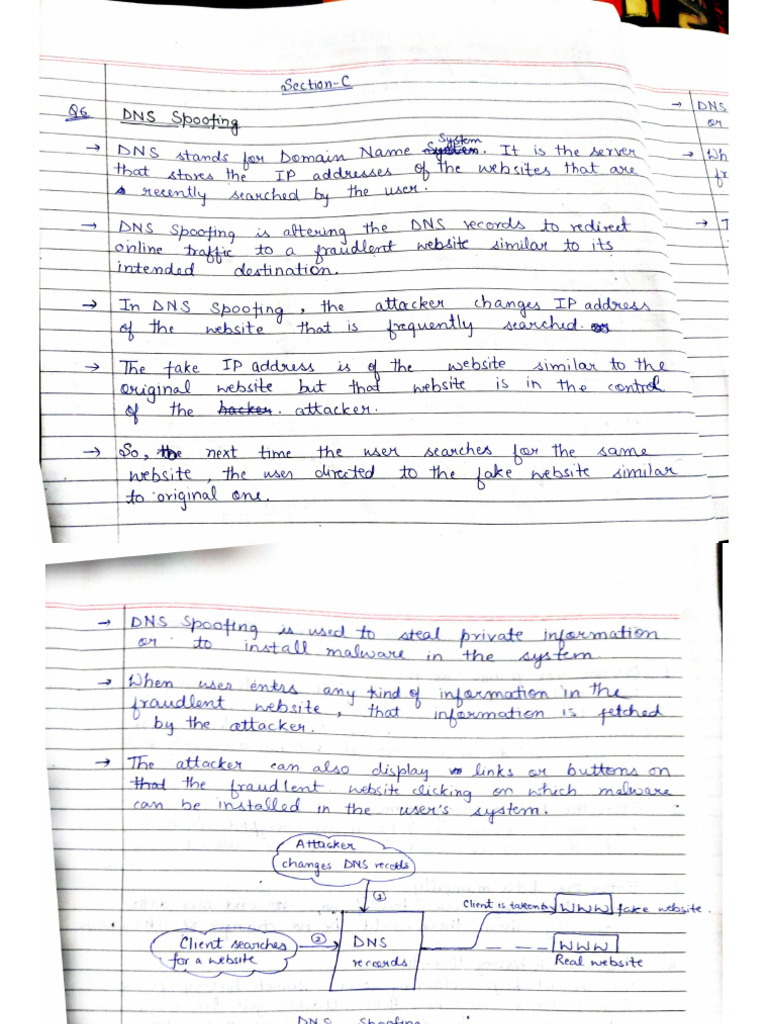 Section-C
Q6 DNS Spoofing
→ DNS stands for Domain Name System. It is the server
that stores the IP addresses of the websites that are
recently searched by the user.
→ DNS Spoofing is altering the DNS records to redirect
online traffic to a fraudlent website similar to its
intended destination.
→ In DNS Spoofing, the attacker changes IP address
of the website that is frequently searched.
→ The fake IP address is of the website similar to the
original website but that website is in the control
of the hacker. attacker.
→ So, the next time the user searches for the same
website, the user directed to the fake website similar
to original one.
→ DNS
or
→ Wh
fr
→ T
→ DNS Spoofing is used to steal private information
or to install malware in the system.
→ When user entrs any kind of information in the
fraudlent website, that information is fetched
by the attacker.
→ The attacker can also display links or buttons on
that the fraudlent website clicking on which malware
can be installed in the user's system.
Attacker
changes DNS records
①
Client is taken to WWW fake website.
Client searches
for a website
②
DNS
records
WWW
Real website
DNS Spoofing